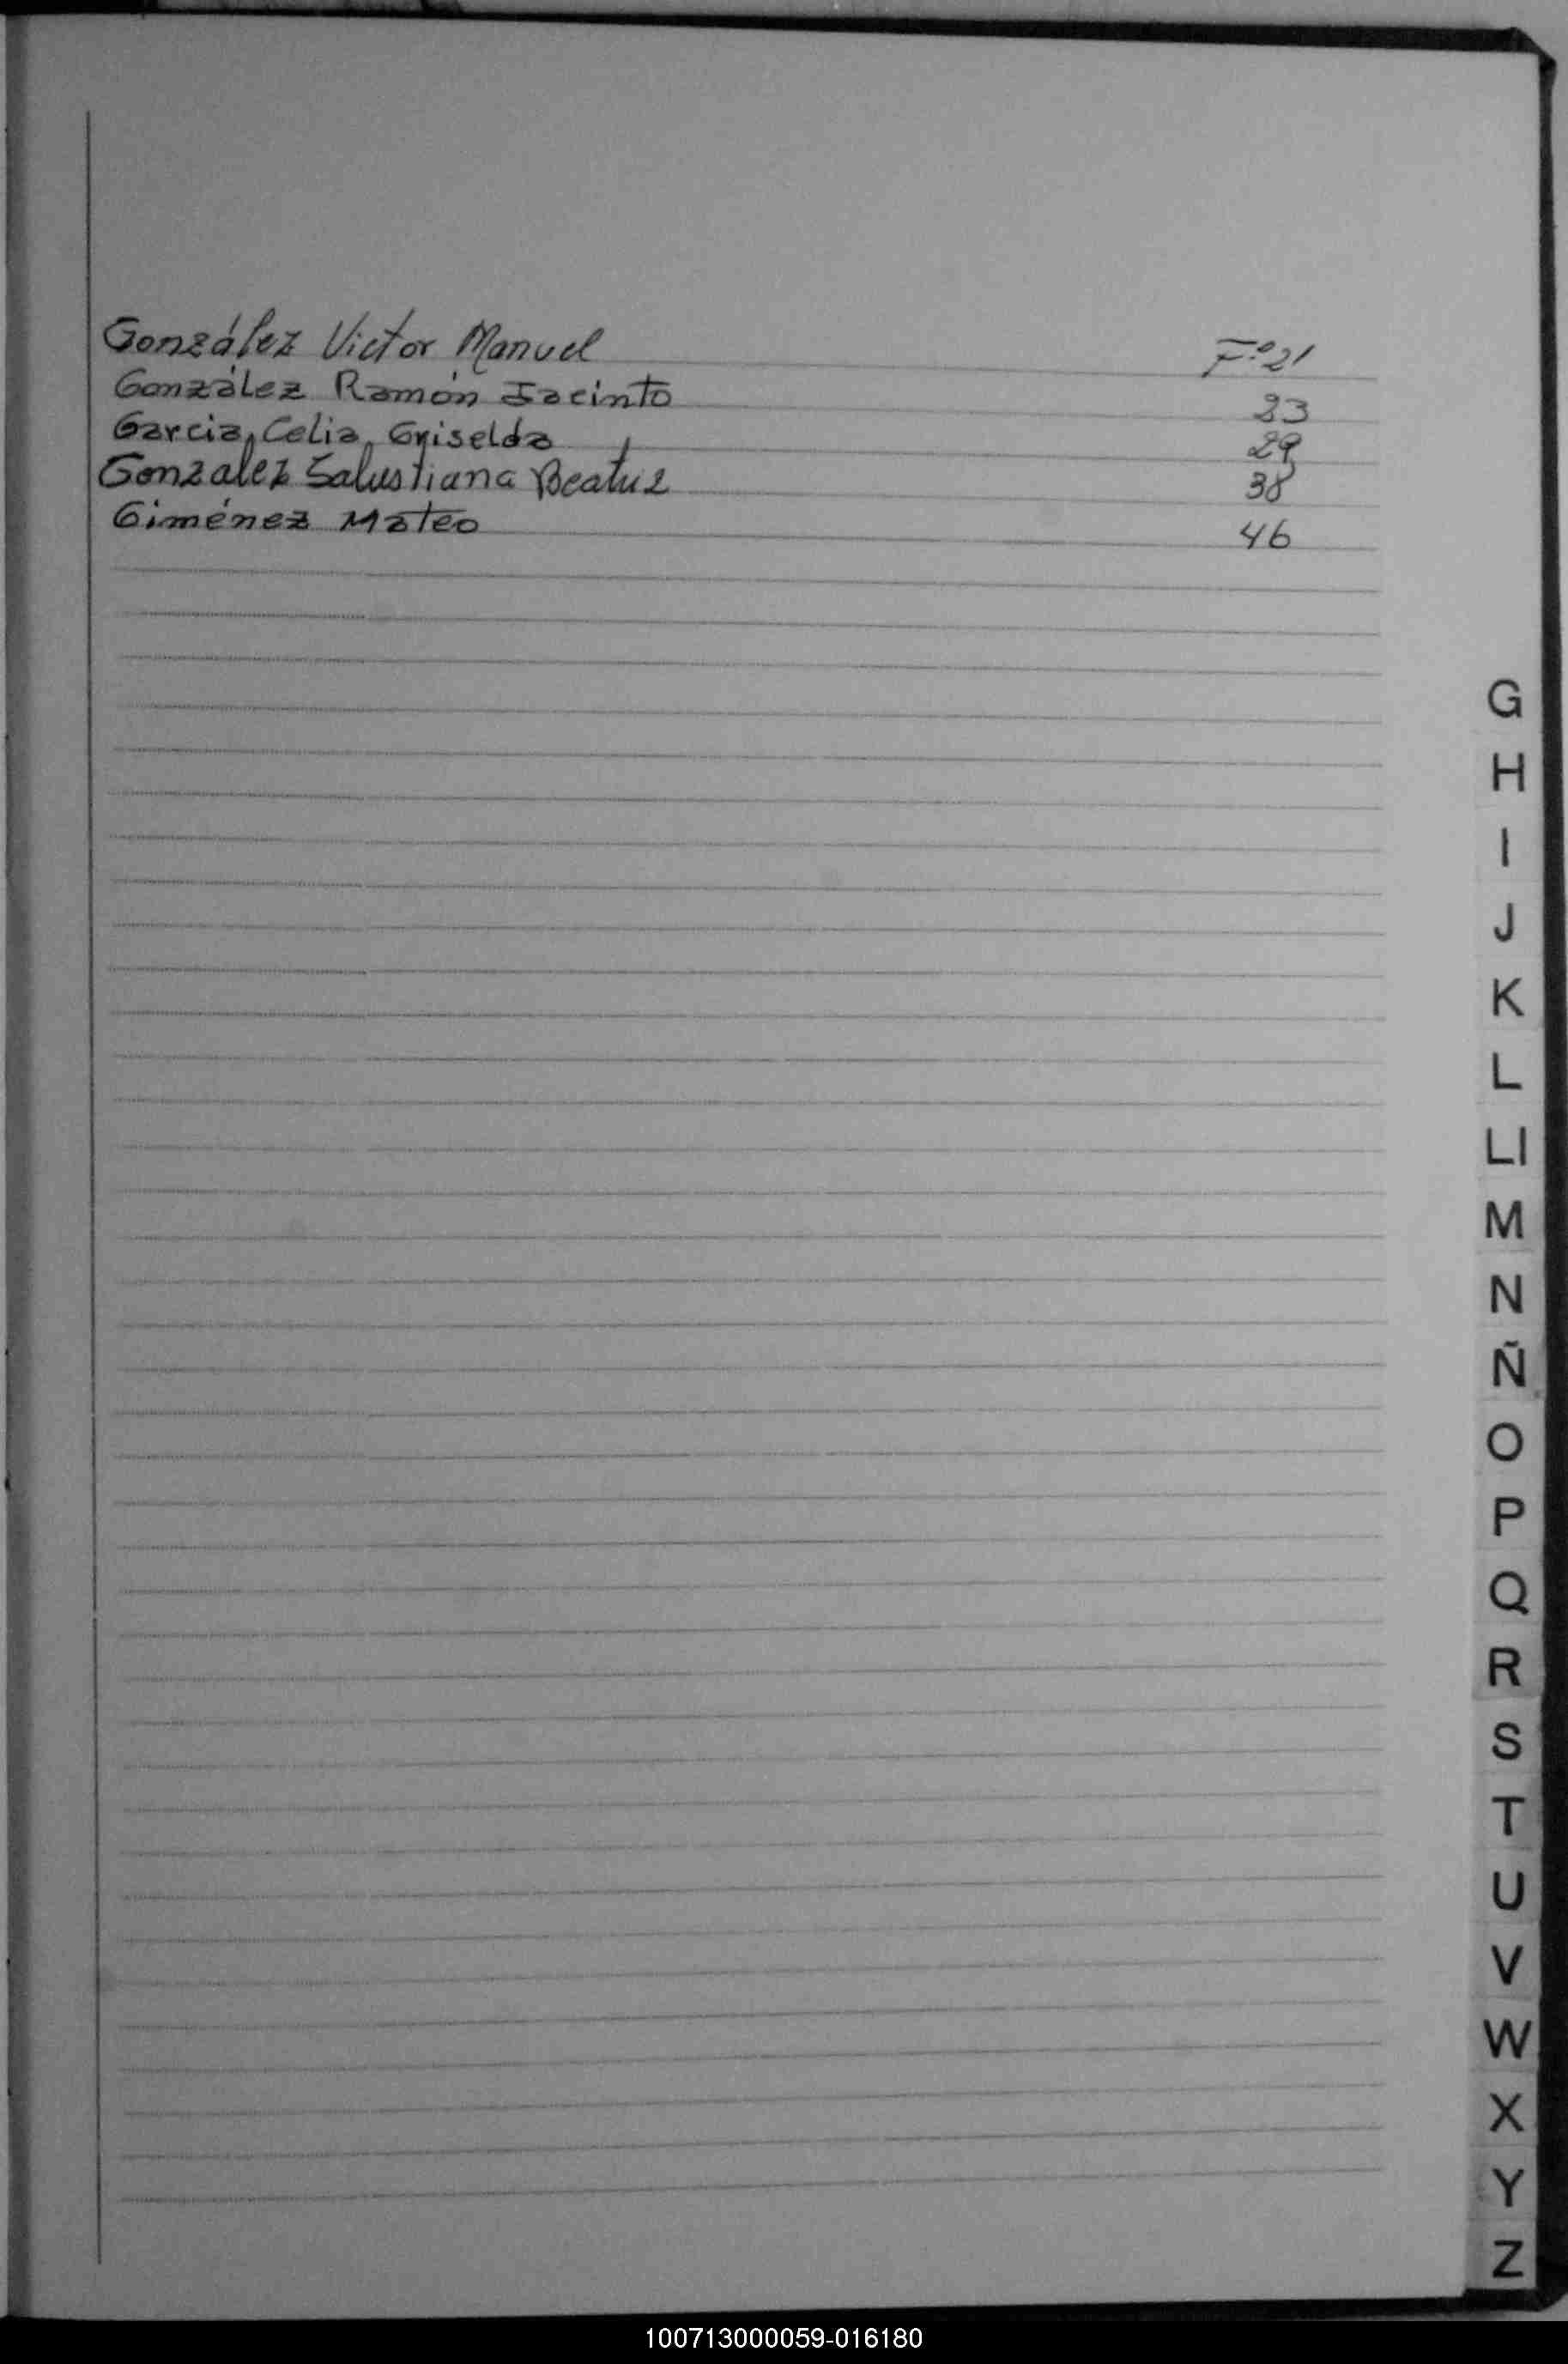 González Victor Manuel Fº 21
González Ramón Jacinto 23
Garcia, Celia, Griselda 29
Gonzalez Salustiana Beatriz 38
Giménez Mateo 46
G
H
I
J
K
L
Ll
M
N
Ñ
O
P
Q
R
S
T
U
V
W
X
Y
Z
100713000059-016180